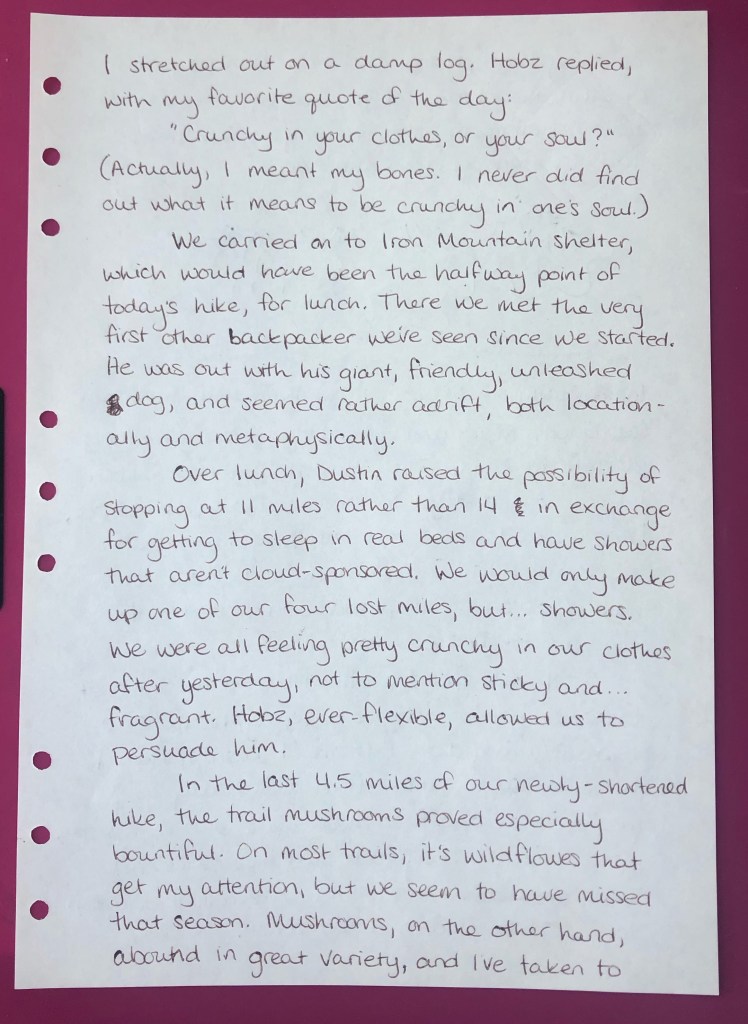 I stretched out on a damp log. Hobz replied,
with my favorite quote of the day:
"Crunchy in your clothes, or your soul?"
(Actually, I meant my bones. I never did find
out what it means to be crunchy in one's soul.)
We carried on to Iron Mountain Shelter,
which would have been the halfway point of
today's hike, for lunch. There we met the very
first other backpacker we've seen since we started.
He was out with his giant, friendly, unleashed
dog, and seemed rather adrift, both location-
ally and metaphysically.
Over lunch, Dustin raised the possibility of
stopping at 11 miles rather than 14 in exchange
for getting to sleep in real beds and have showers
that aren't cloud-sponsored. We would only make
up one of our four lost miles, but... showers.
We were all feeling pretty crunchy in our clothes
after yesterday, not to mention sticky and...
fragrant. Hobz, ever-flexible, allowed us to
persuade him.
In the last 4.5 miles of our newly-shortened
hike, the trail mushrooms proved especially
bountiful. On most trails, it's wildflowes that
get my attention, but we seem to have missed
that season. Mushrooms, on the other hand,
abound in great variety, and I've taken to